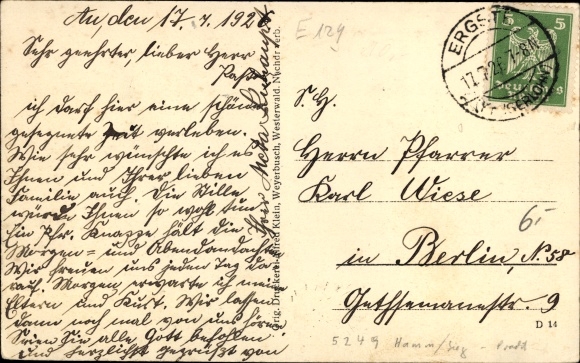 Au/den 17. 7. 192
Sehr geehrter, lieber Herr
Pastor
ich darf hier eine schöne
gesegnete Zeit verleben.
Wie sehr wünschte ich es
Ihnen und Ihrer lieben
Familie auch. Die Stille
würde Ihnen so wohl tun
Ein Pfr. Knappe hält die
Morgen- und Abendandachten
Wir freuen uns jeden Tag da
rauf. Morgen erwarte ich meine
Eltern und Kurt. Wir lassen
dann noch mal von uns hören
Seien Sie alle Gott befohlen
und herzlichst gegrüßt von
Ihrer
Orig. Druckerei Alfred Klein, Weyerbusch, Westerwald. Nachdr. verb.
E 129
5 5
17.7.2 1-8N
S. H.
Herrn Pfarrer
Karl Wiese
6.-
in Berlin, N. 58
Gethsemanestr. 9
D 14
5249 Hamm/Sieg